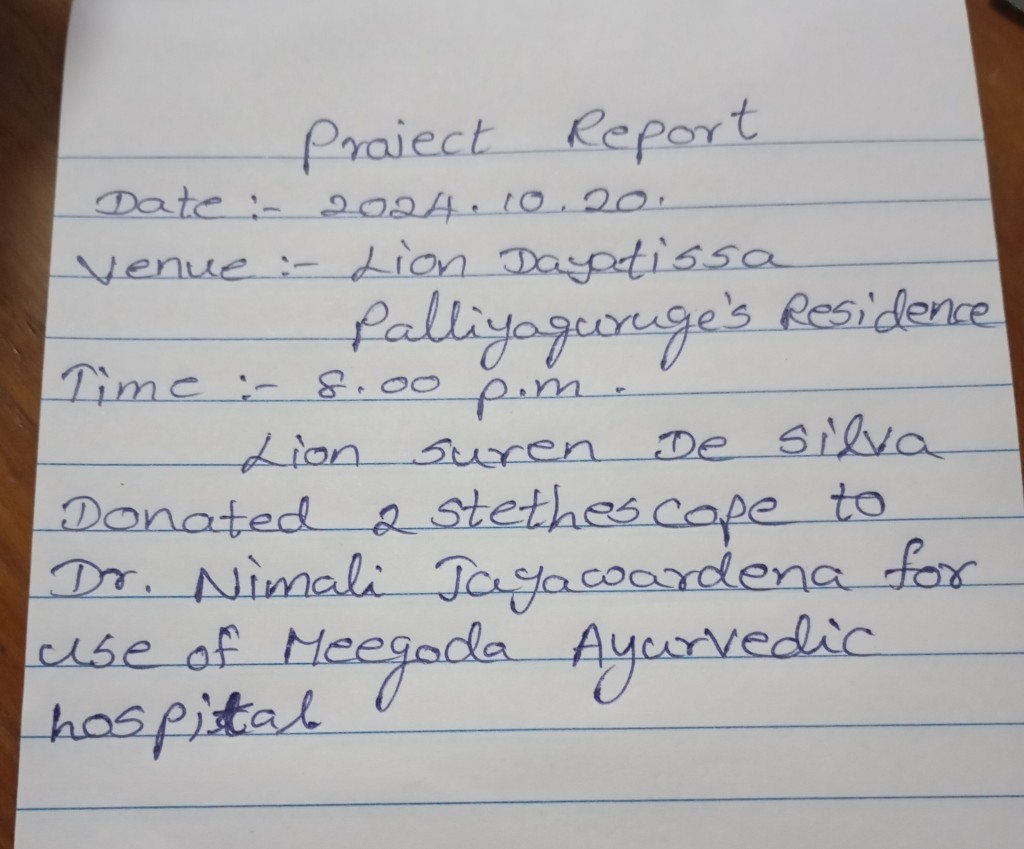 Praiect Report
Date :- 2024.10.20.
Venue :- Lion Dayatissa
Palliyaguruge's Residence
Time :- 8.00 p.m.
Lion Suren De Silva
Donated 2 stethescope to
Dr. Nimali Jayawardena for
use of Meegoda Ayurvedic
hospital